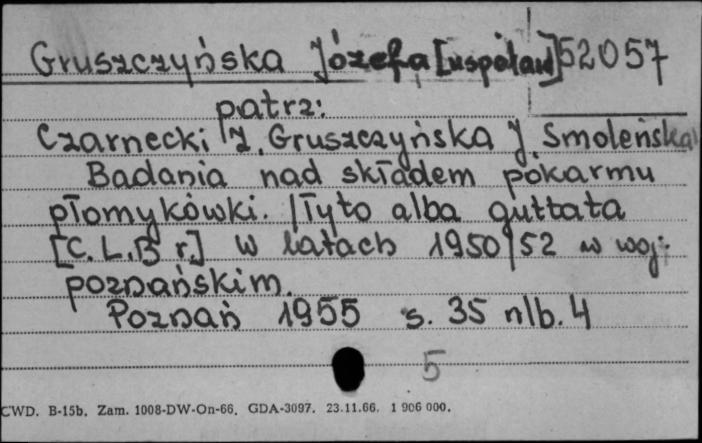 Gruszczyńska Józefa [współaut] 52057
patrz:
Czarnecki Z. Gruszczyńska J. Smoleńska
Badania nad składem pokarmu
płomykówki. /Tyto alba guttata
[C.L.B r.] w latach 1950/52 w woj:
poznańskim.
Poznań 1955 s. 35 nlb. 4
5
CWD. B-15b. Zam. 1008-DW-On-66. GDA-3097. 23.11.66. 1 906 000.